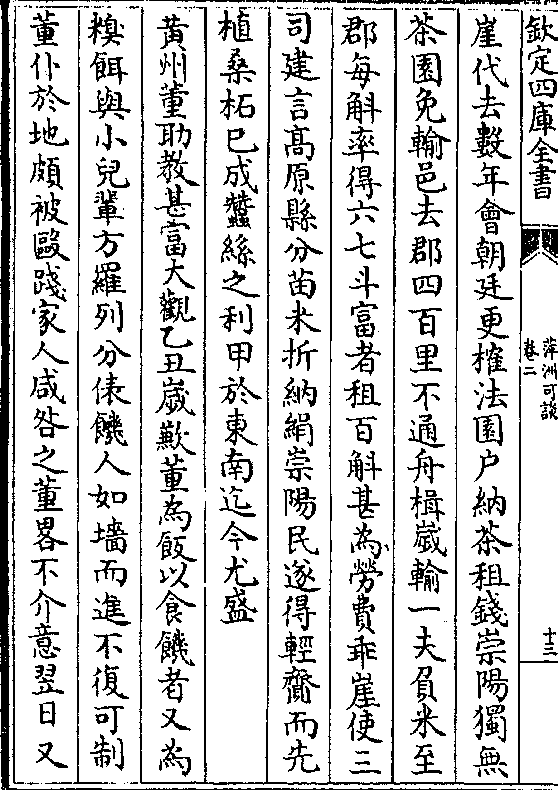 欽定四庫全書
萍洲可談
卷二
十三
崖代去數年會朝廷更榷法園户納茶租錢崇陽獨無
茶園免輸邑去郡四百里不通舟楫嵗輸一夫負米至
郡每斛率得六七斗富者租百斛甚為勞費乖崖使三
司建言髙原縣分苗米折納絹崇陽民遂得輕齎而先
植桑柘已成蠶絲之利甲於東南迄今尤盛
黄州董助教甚富大觀乙丑嵗歉董為飯以食饑者又為
糗餌與小兒輩方羅列分俵饑人如墻而進不復可制
董仆於地頗被毆踐家人咸咎之董畧不介意翌日又